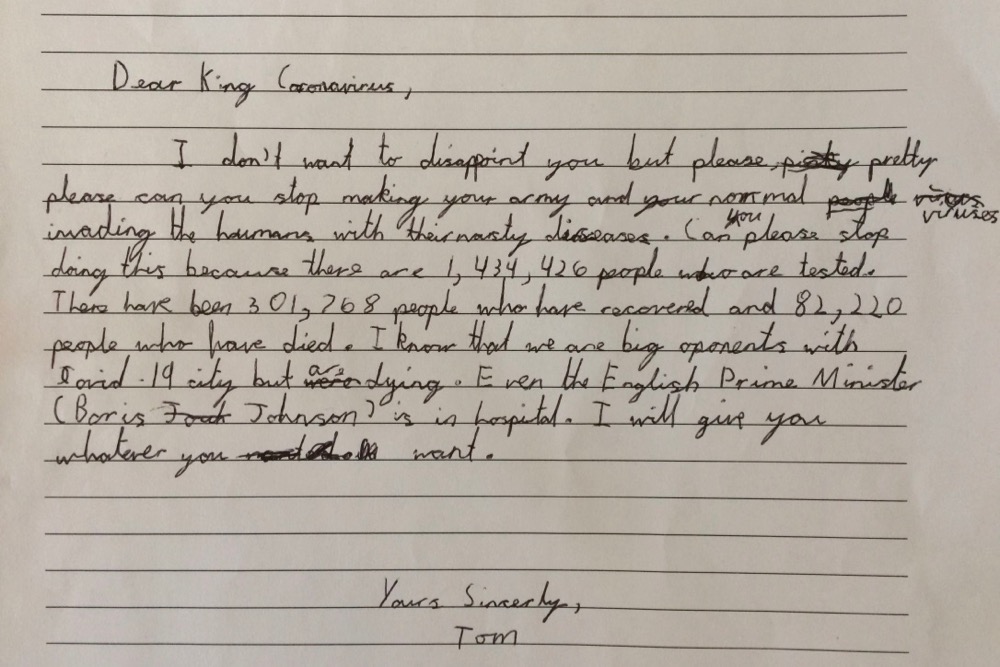 Dear King Coronavirus,
I don't want to disappoint you but please, pretty
please can you stop making your army and your normal people viruses
invading the humans with their nasty diseases. Can you please stop
doing this because there are 1,434,426 people who are tested.
There have been 301,768 people who have recovered and 82,220
people who have died. I know that we are big oponents with
Covid-19 city but are dying. Even the English Prime Minister
(Boris Johnson) is in hospital. I will give you
whatever you want.
Yours Sincerly,
Tom